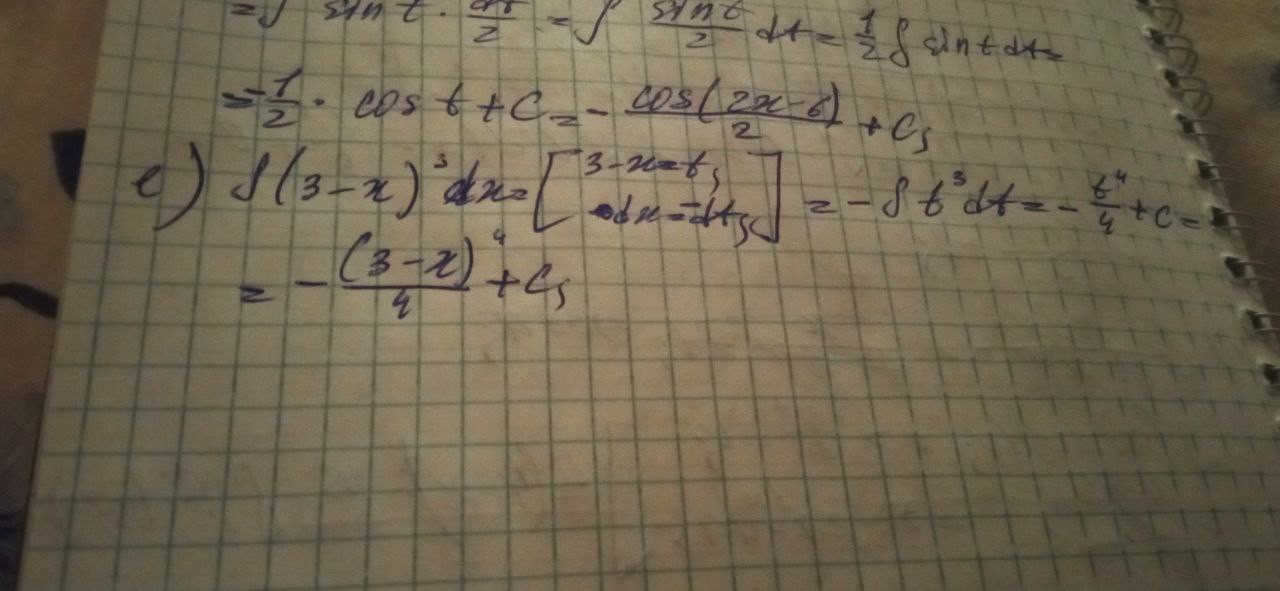 = ∫ sin t · dt/2 = ∫ sin t/2 dt = 1/2 ∫ sin t dt =
= -1/2 · cos t + C = - cos(2x-6)/2 + C;
e) ∫(3-x)³dx = [3-x=t; dx=-dt;] = -∫t³dt = -t⁴/4 + C =
= -(3-x)⁴/4 + C;